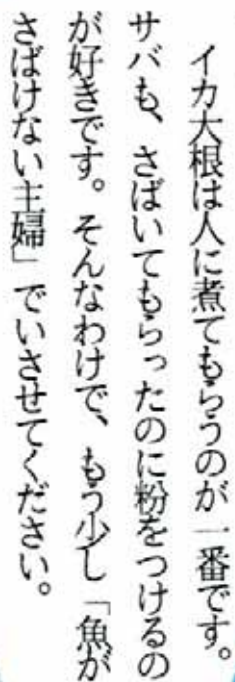 イカ大根は人に煮てもらうのが一番です。
サバも、さばいてもらったのに粉をつけるの
が好きです。そんなわけで、もう少し「魚が
さばけない主婦」でいさせてください。